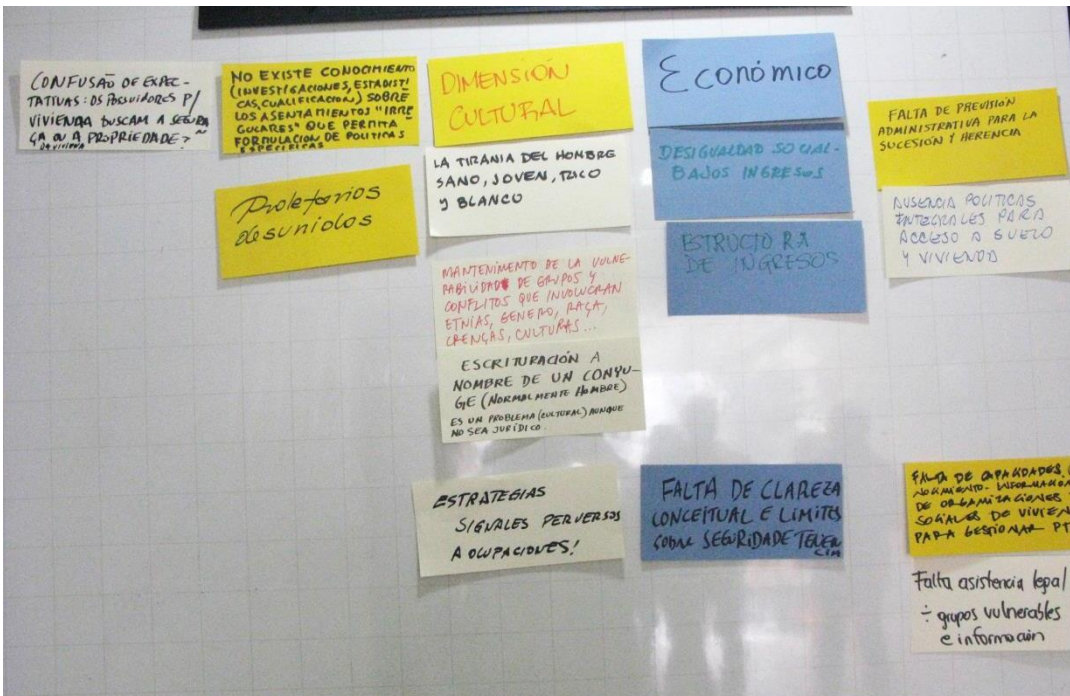 CONFUSÃO DE EXPEC-
TATIVAS: OS POSUIDORES P/
VIVIENDA BUSCAM A SEGURA
ÇA OU A PROPRIEDADE?
DA VIVIENDA
NO EXISTE CONOCIMIENTO
(INVESTIGACIONES, ESTADISTI
CAS, CUALIFICACION) SOBRE
LOS ASENTAMIENTOS "IRRE
GULARES" QUE PERMITA
FORMULACION DE POLITICAS
ESPECIFICAS
Proletarios
desunidos
DIMENSIÓN
CULTURAL
LA TIRANIA DEL HOMBRE
SANO, JOVEN, RICO
Y BLANCO
MANTENIMENTO DE LA VULNE-
RABILIDAD DE GRUPOS Y
CONFLITOS QUE INVOLUCRAN
ETNÍAS, GENERO, RAÇA,
CRENÇAS, CULTURAS...
ESCRITURACIÓN A
NOMBRE DE UN CONYU-
GE (NORMALMENTE HOMBRE)
ES UN PROBLEMA (CULTURAL) AUNQUE
NO SEA JURÍDICO.
ESTRATEGIAS
SIGNALES PERVERSOS
A OCUPACIONES!
Económico
DESIGUALDAD SOCIAL-
BAJOS INGRESOS
ESTRUCTURA
DE INGRESOS
FALTA DE CLAREZA
CONCEITUAL E LIMITES
SOBRE SEGURIDADE TENEN
CIA
FALTA DE PREVISIÓN
ADMINISTRATIVA PARA LA
SUCESIÓN Y HERENCIA
AUSENCIA POLITICAS
INTEGRALES PARA
ACCESO A SUELO
Y VIVIENDA
FALTA DE CAPACIDADES,
NOCIMIENTO - INFORMACIO
DE ORGANIZACIONES
SOCIALES DE VIVIEN
PARA GESTIONAR PT
Falta asistencia legal
÷ grupos vulnerables
e información